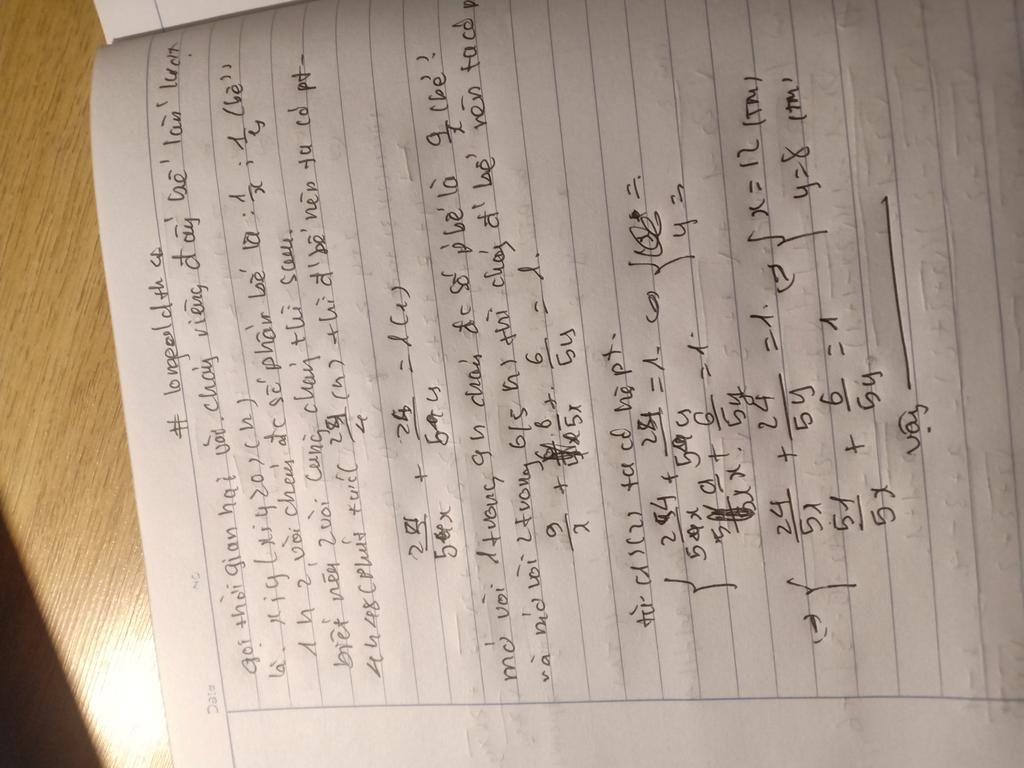 Date
No
# lovgeoldtha
gọi thời gian hai vòi chảy riêng đầy bể lần lượt
là x; y (x; y > 0) (h)
1 h 2 vòi chảy đc số phần bể là: 1/x ; 1/y (bể)
biết nếu 2 vòi cùng chảy thì sau
4h48 (phút) tức 24/ (h) thì đ bể nên ta có pt
24/5x + 24/5y = 1 (1)
mở vòi 1 trong 9h chảy đc số p bể là 9/x (bể)
và mở vòi 2 trong 6/5 h) thì chảy đ bể nên ta có p
9/x + 6/5x + 6/5y = 1.
từ (1) (2) ta có hệ pt.
{ 24/5x + 24/5y = 1 <=> { =
{ + 6/5y = 1. y =
<=> { 24/5x + 24/5y = 1. <=> { x = 12 (TM)
{ 51/5x + 6/5y = 1 y = 8 (TM)
vậy